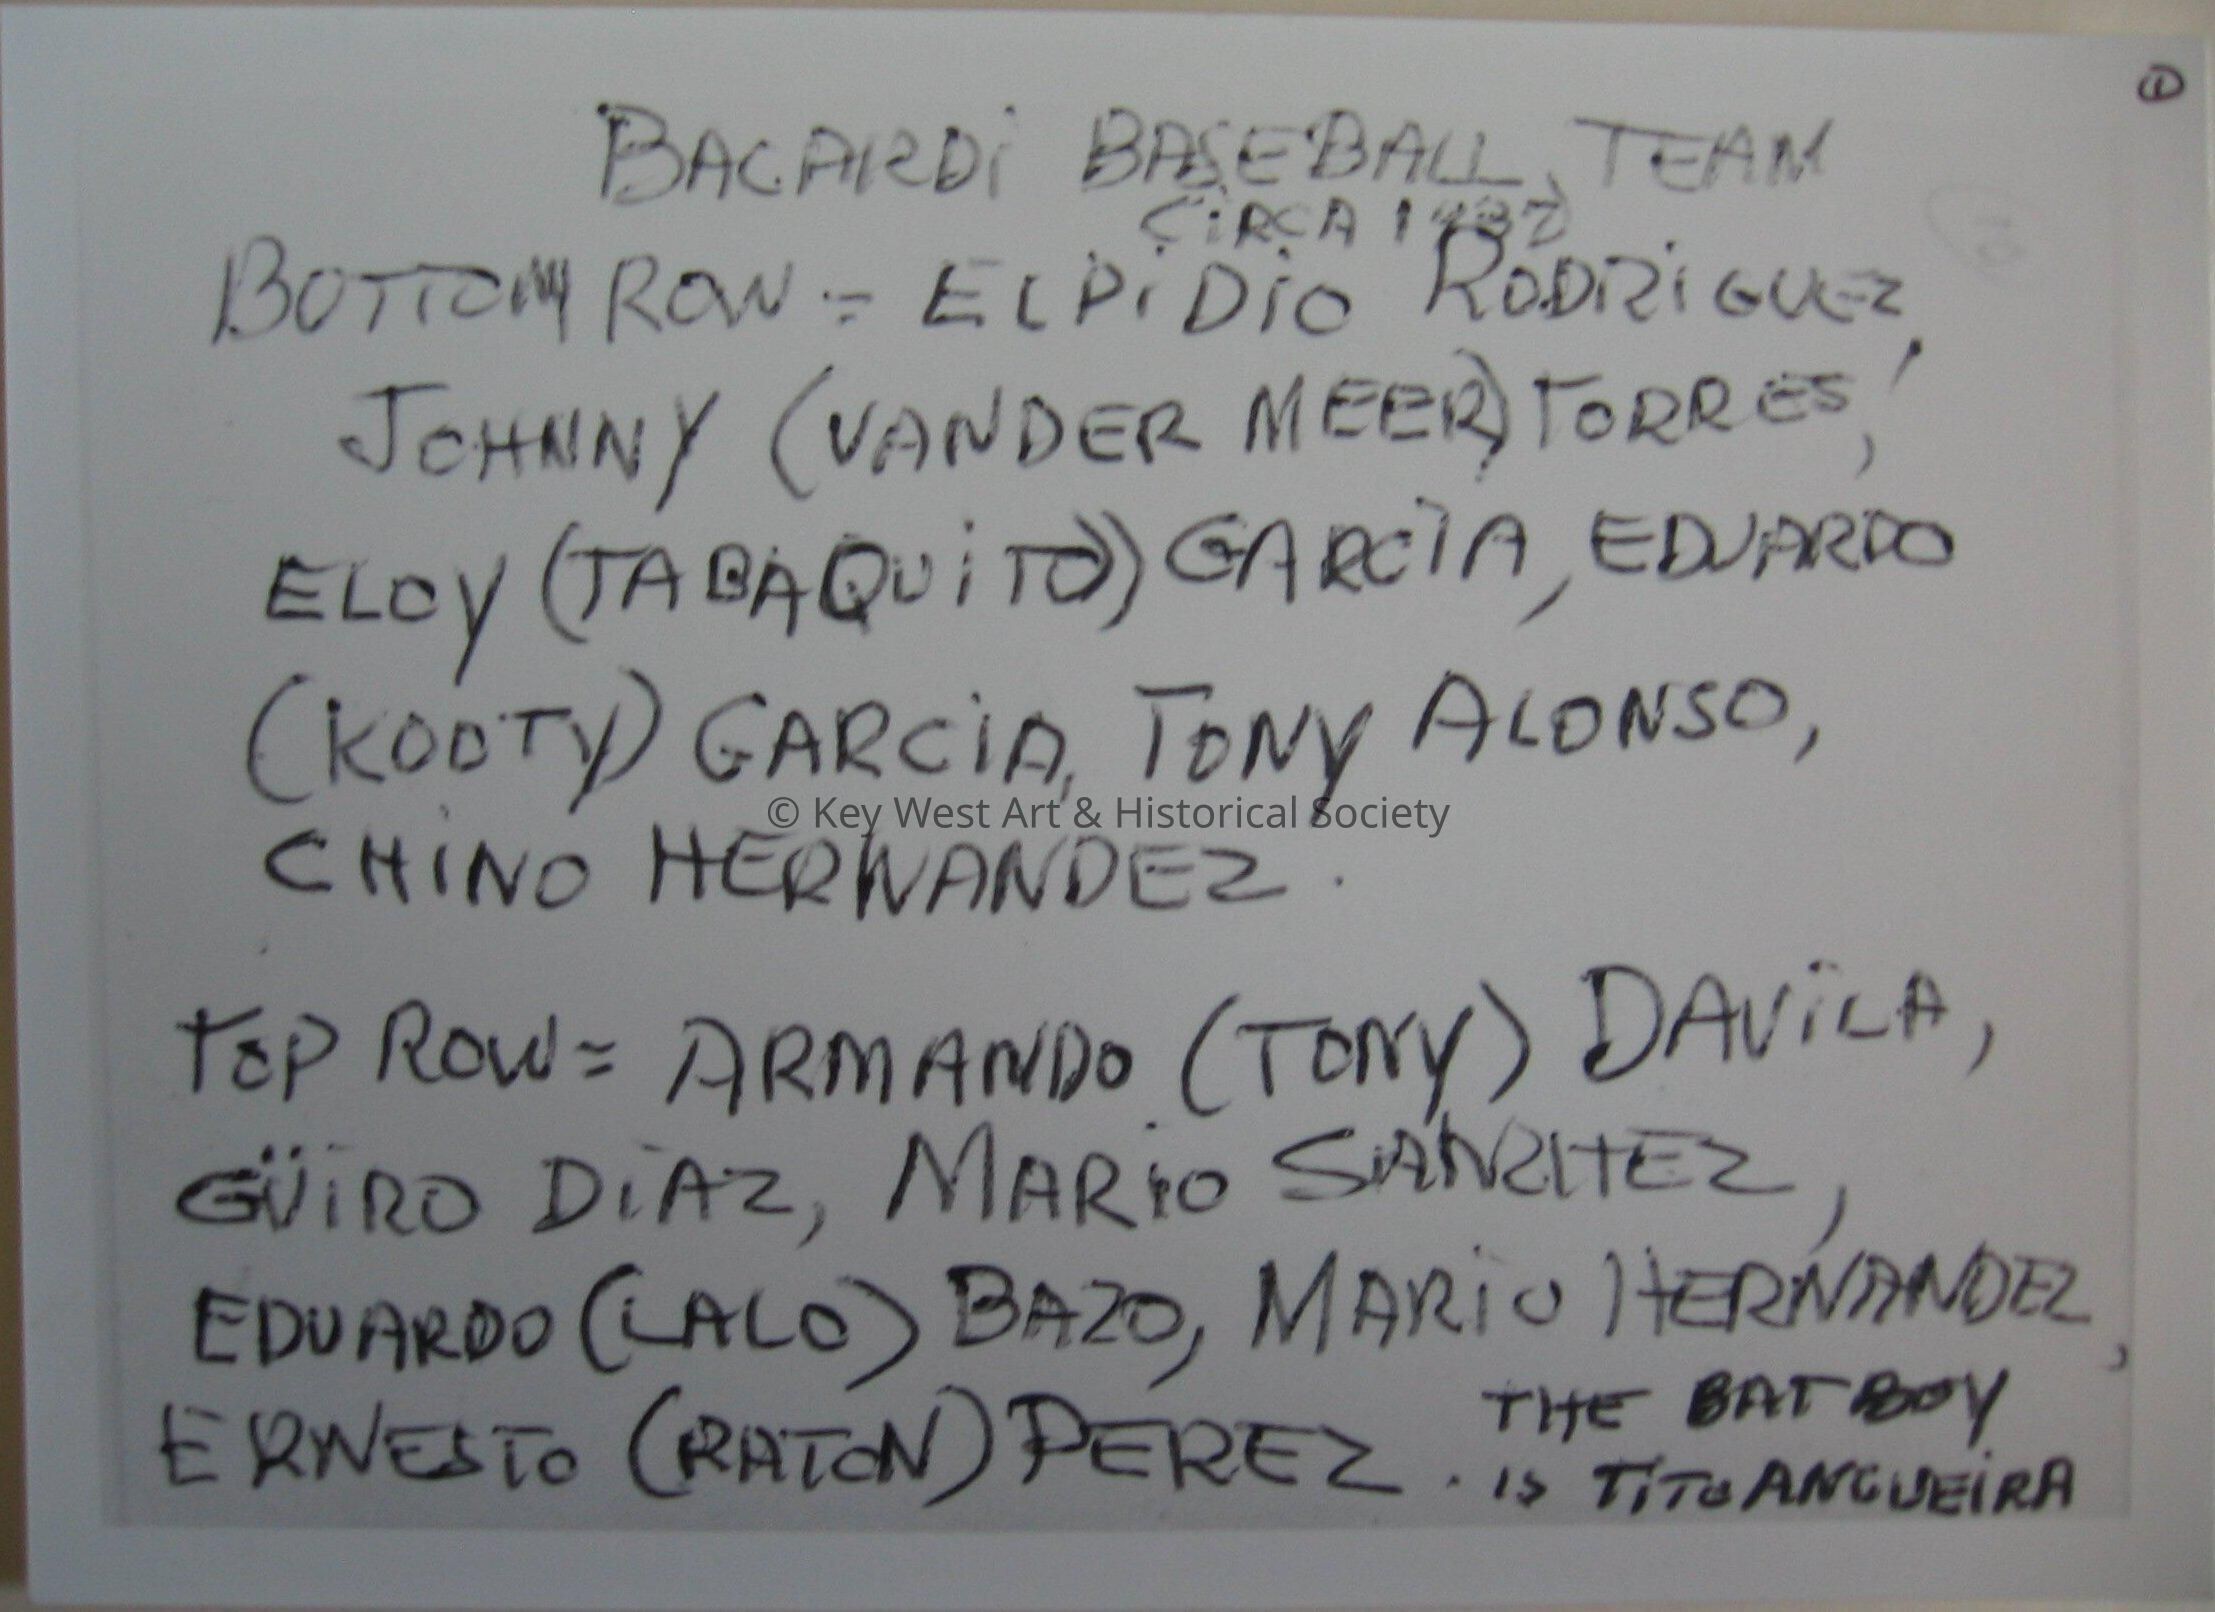 ①
BACARDi BASEBALL TEAM
CiRCA
BOTTOM ROW = ELPiDiO RODRiGUEZ,
JOHNNY (VANDER MEER) TORRES,
ELOY (TABAQUiTO) GARCiA, EDUARDO
(KOOTY) GARCiA, TONY ALONSO,
© Key West Art & Historical Society
CHiNO HERNANDEZ.
TOP ROW = ARMANDO (TONY) DAViLA,
GÜiRO DiAZ, MARiO SANCHEZ,
EDUARDO (LALO) BAZO, MARiO HERNANDEZ,
ERNESTO (RATON) PEREZ. THE BAT BOY
iS TiTO ANGUEiRA